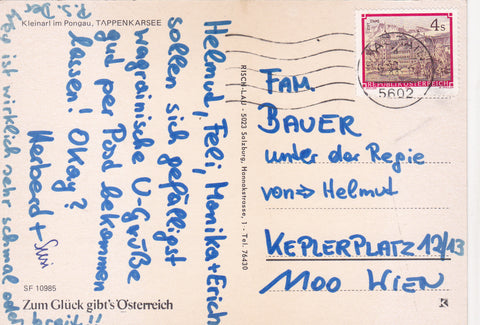 Kleinarl im Pongau, TAPPENKARSEE
Helmut, Feli, Monika + Erich
sollen sich gefälligst
wagrainische U-Grüße
gut per Post bekommen
lassen! Okay?
Herberd +
Susi
P.S. Der
Weg ist wirklich sehr schmal oder
breit!!
SF 10985
Zum Glück gibt's Österreich
RISCH-LAU · 5023 Salzburg, Hannakstrasse, 1 · Tel. 76430
4 S
REPUBLIK ÖSTERREICH
5602
FAM.
BAUER
unter der Regie
von → Helmut
KEPLERPLATZ 12/13
1100 WIEN